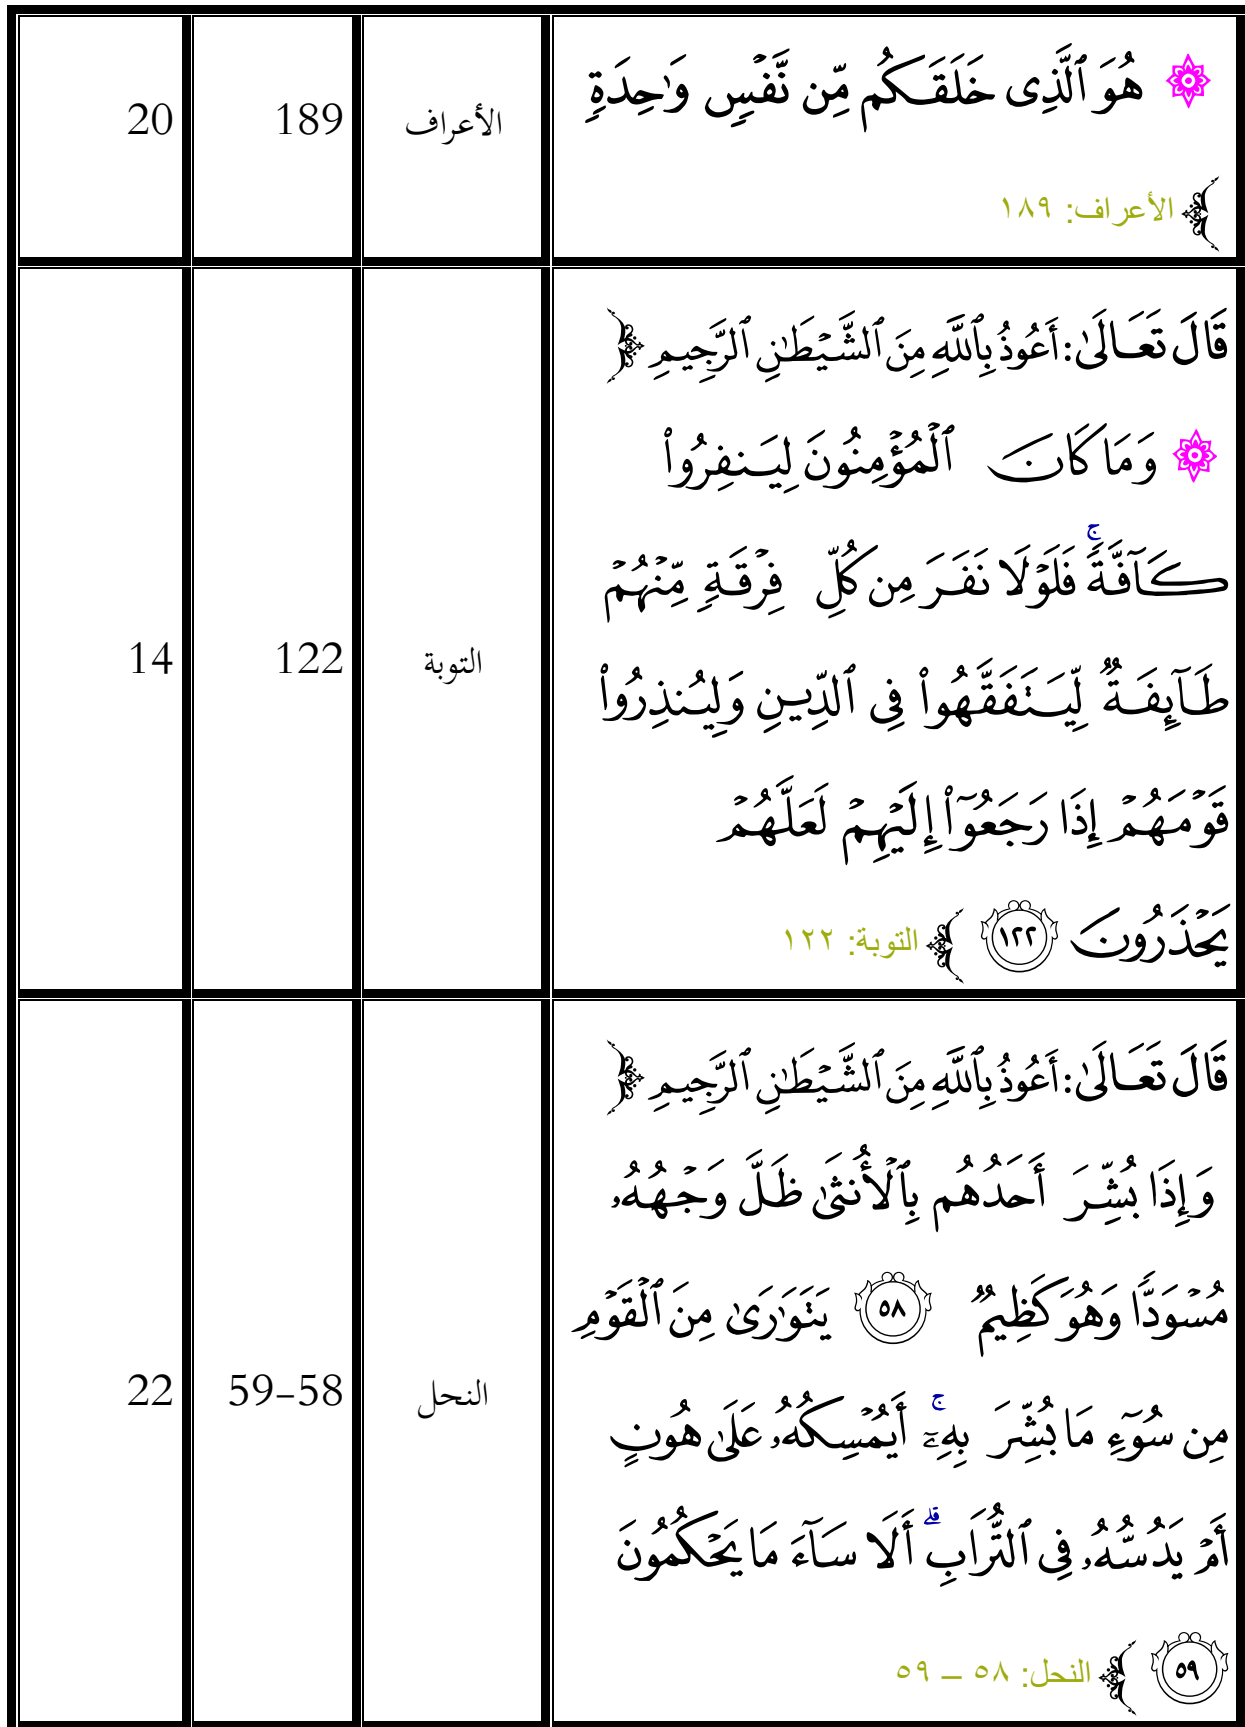 ۞ هُوَ ٱلَّذِى خَلَقَكُم مِّن نَّفْسٍ وَٰحِدَةٍ
﴾ الأعراف: ١٨٩
الأعراف
189
20
قَالَ تَعَالَىٰ: أَعُوذُ بِٱللَّهِ مِنَ ٱلشَّيْطَٰنِ ٱلرَّجِيمِ ﴿
۞ وَمَا كَانَ ٱلْمُؤْمِنُونَ لِيَنفِرُوا۟
كَآفَّةً ۚ فَلَوْلَا نَفَرَ مِن كُلِّ فِرْقَةٍ مِّنْهُمْ
طَآئِفَةٌ لِّيَتَفَقَّهُوا۟ فِى ٱلدِّينِ وَلِيُنذِرُوا۟
قَوْمَهُمْ إِذَا رَجَعُوٓا۟ إِلَيْهِمْ لَعَلَّهُمْ
يَحْذَرُونَ ١٢٢ ﴾ التوبة: ١٢٢
التوبة
122
14
قَالَ تَعَالَىٰ: أَعُوذُ بِٱللَّهِ مِنَ ٱلشَّيْطَٰنِ ٱلرَّجِيمِ ﴿
وَإِذَا بُشِّرَ أَحَدُهُم بِٱلْأُنثَىٰ ظَلَّ وَجْهُهُۥ
مُسْوَدًّا وَهُوَ كَظِيمٌ ٥٨ يَتَوَٰرَىٰ مِنَ ٱلْقَوْمِ
مِن سُوٓءِ مَا بُشِّرَ بِهِۦٓ ۚ أَيُمْسِكُهُۥ عَلَىٰ هُونٍ
أَمْ يَدُسُّهُۥ فِى ٱلتُّرَابِ ۗ أَلَا سَآءَ مَا يَحْكُمُونَ
٥٩ ﴾ النحل: ٥٨ – ٥٩
النحل
59-58
22